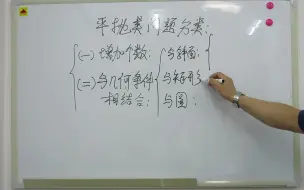 平抛类问题分类:
(一)增加个数:
(二)与几何条件
相结合:
与斜面:
与矩形
与圆: